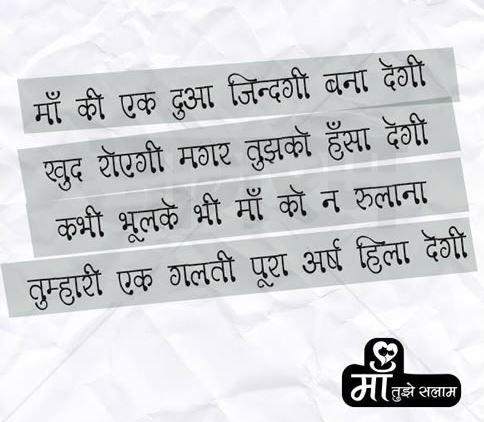 माँ की एक दुआ जिन्दगी बना देगी
खुद रोएगी मगर तुझको हँसा देगी
कभी भूलके भी माँ को न रुलाना
तुम्हारी एक गलती पूरा अर्ष हिला देगी
माँ तुझे सलाम